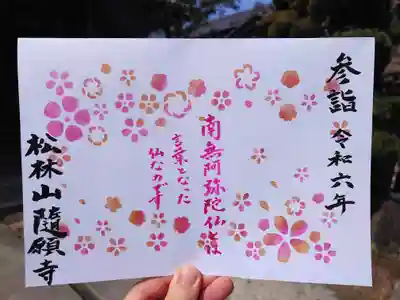 参詣
令和六年
南無阿弥陀仏とは
言葉となった
仏なのです
松林山隨願寺